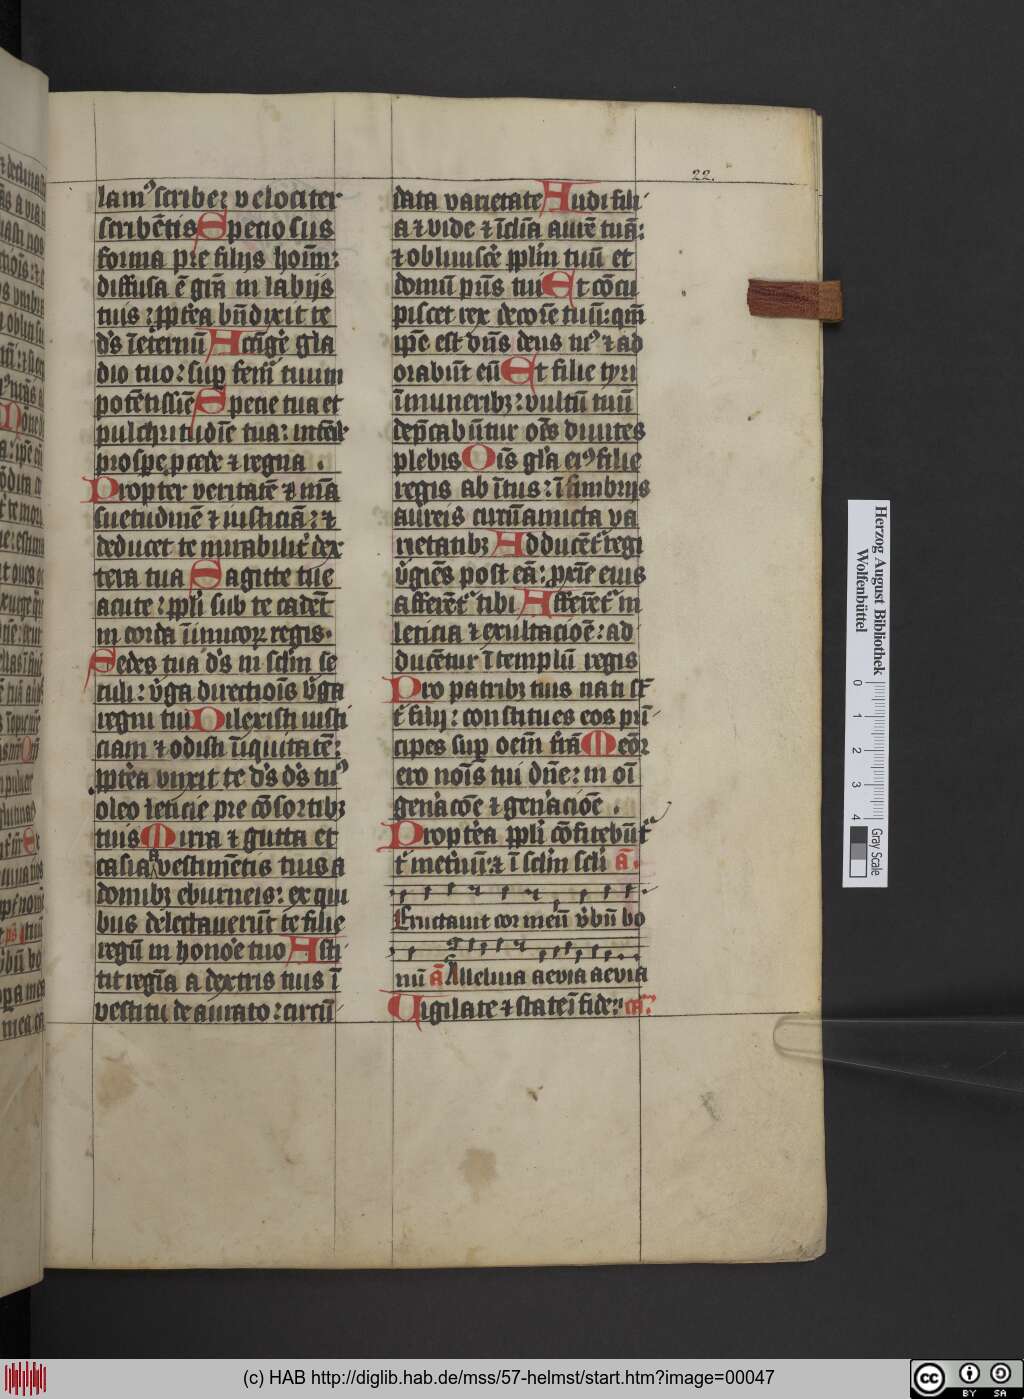 22.
lamꝰ scribe: velociter
scribētis Specio sus
forma pre filijs hoīm:
diffusa ē gr̄a in labijs
tuis: ꝓptea bn̄dixit te
ds̄ ī eternū Accīge gla
dio tuo: suꝑ femꝝ tuum
potētissīe Specie tua et
pulchritudīe tua: intēde
prospe ꝓcede ⁊ regna .
Propter veritatē ⁊ mā
suetudinē ⁊ iusticiā: ⁊
deducet te mirabilit dex
tera tua Sagitte tue
acute: ppl̄i sub te cadēt
in corda īimicoꝝ regis.
Sedes tua ds̄ in scl̄m se
culi: v̄ga directiōis v̄ga
regni tui Dilexisti iusti
ciam ⁊ odisti īiquitatē:
ꝓptea vnxit te ds̄ ds̄ tuꝰ
oleo leticie pre cōsortibꝫ
tuis Mirra ⁊ gutta et
casia a vestimētis tuis a
domibꝫ eburneis: ex qui
bus delectauerūt te filie
regū in honoe tuo Asti
tit regīa a dextris tuis ī
vestitu deaurato: circū
data varietate Audi fili
a ⁊ vide ⁊ īclīa aurē tuā:
⁊ obliuisce ppl̄m tuū et
domū pr̄is tui Et cōcu
piscet rex decorē tuū: qm̄
ip̄e est dn̄s deus tuꝰ ⁊ ad
orabūt eū Et filie tyri
ī muneribꝫ: vultū tuū
dep̄cabūtur oēs diuites
plebis Oīs gl̄a eiꝰ filie
regis ab ītus: ī fimbrijs
aureis circūamicta va
rietatibꝫ Adducēt regi
v̄gīes post eā: ꝓxīe eius
afferēt tibi Afferēt in
leticia ⁊ exultacioē: ad
ducētur ī templū regis
Pro patribꝫ tuis nati st̄
t filij: constitues eos prī
cipes suꝑ oēm trā Meōr
ero noīs tui dn̄e: in oī
gen̄acōe ⁊ gen̄acioē .
Proptea ppl̄i cōfitebūt
t inet̄nū: ⁊ ī scl̄m scl̄i ā.
Eructauit cor meū v̄bū bo
nū ā Alleluia aevia aevia
Uigilate ⁊ state ī fide:
Herzog August Bibliothek
Wolfenbüttel
0 1 2 3 4
Gray Scale
(c) HAB http://diglib.hab.de/mss/57-helmst/start.htm?image=00047
cc BY SA